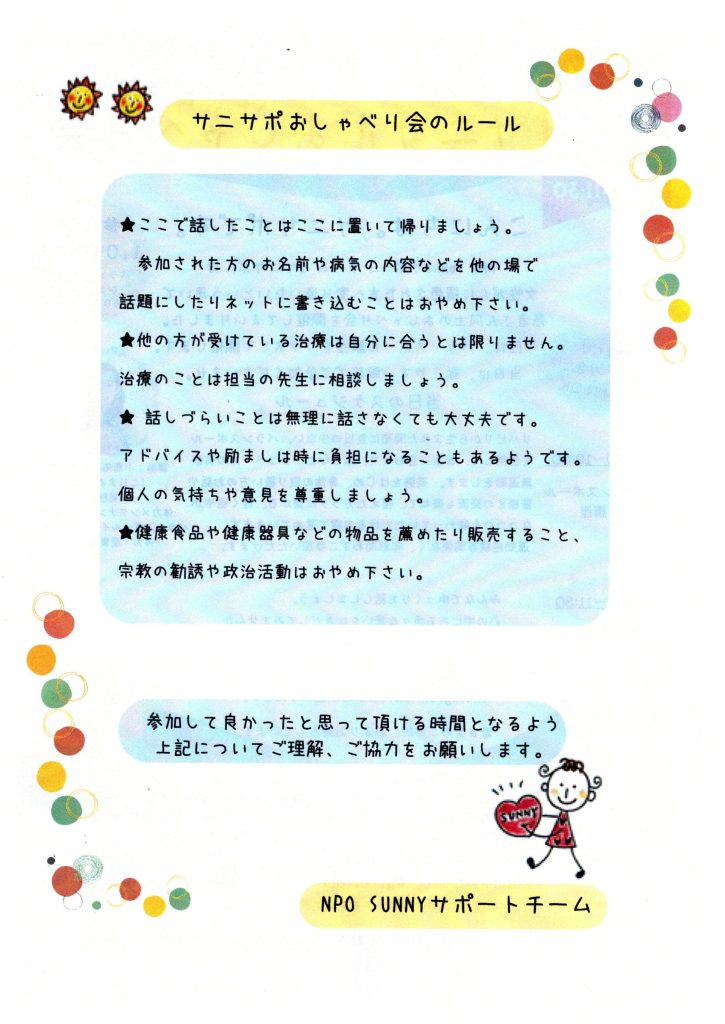 サニサポおしゃべり会のルール
★ここで話したことはここに置いて帰りましょう。
参加された方のお名前や病気の内容などを他の場で
話題にしたりネットに書き込むことはおやめ下さい。
★他の方が受けている治療は自分に合うとは限りません。
治療のことは担当の先生に相談しましょう。
★ 話しづらいことは無理に話さなくても大丈夫です。
アドバイスや励ましは時に負担になることもあるようです。
個人の気持ちや意見を尊重しましょう。
★健康食品や健康器具などの物品を薦めたり販売すること、
宗教の勧誘や政治活動はおやめ下さい。
参加して良かったと思って頂ける時間となるよう
上記についてご理解、ご協力をお願いします。
SUNNY
NPO SUNNYサポートチーム